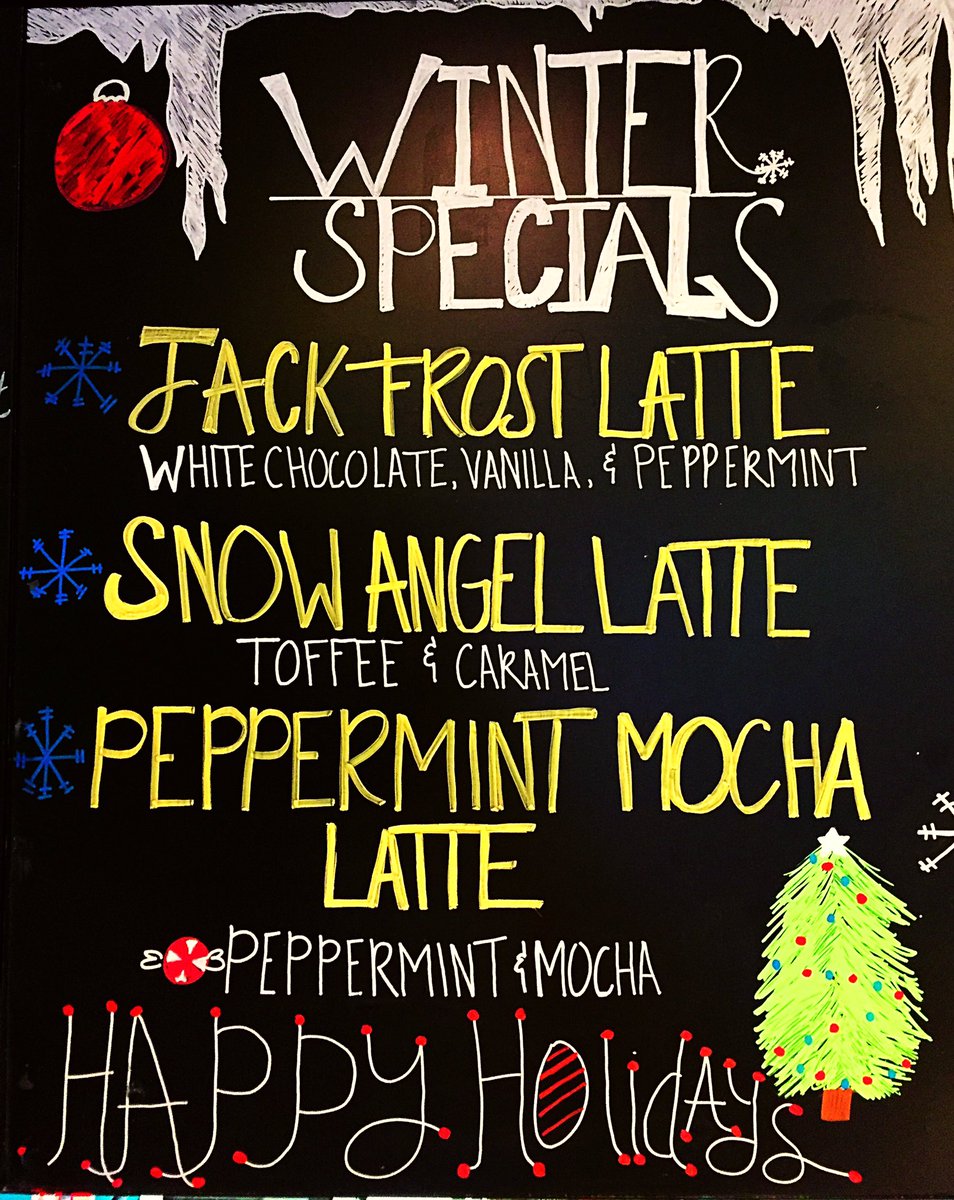 WINTER
SPECIALS
JACK FROST LATTE
WHITE CHOCOLATE, VANILLA, & PEPPERMINT
SNOW ANGEL LATTE
TOFFEE & CARAMEL
PEPPERMINT MOCHA
LATTE
PEPPERMINT & MOCHA
HAPPY HOlidAys